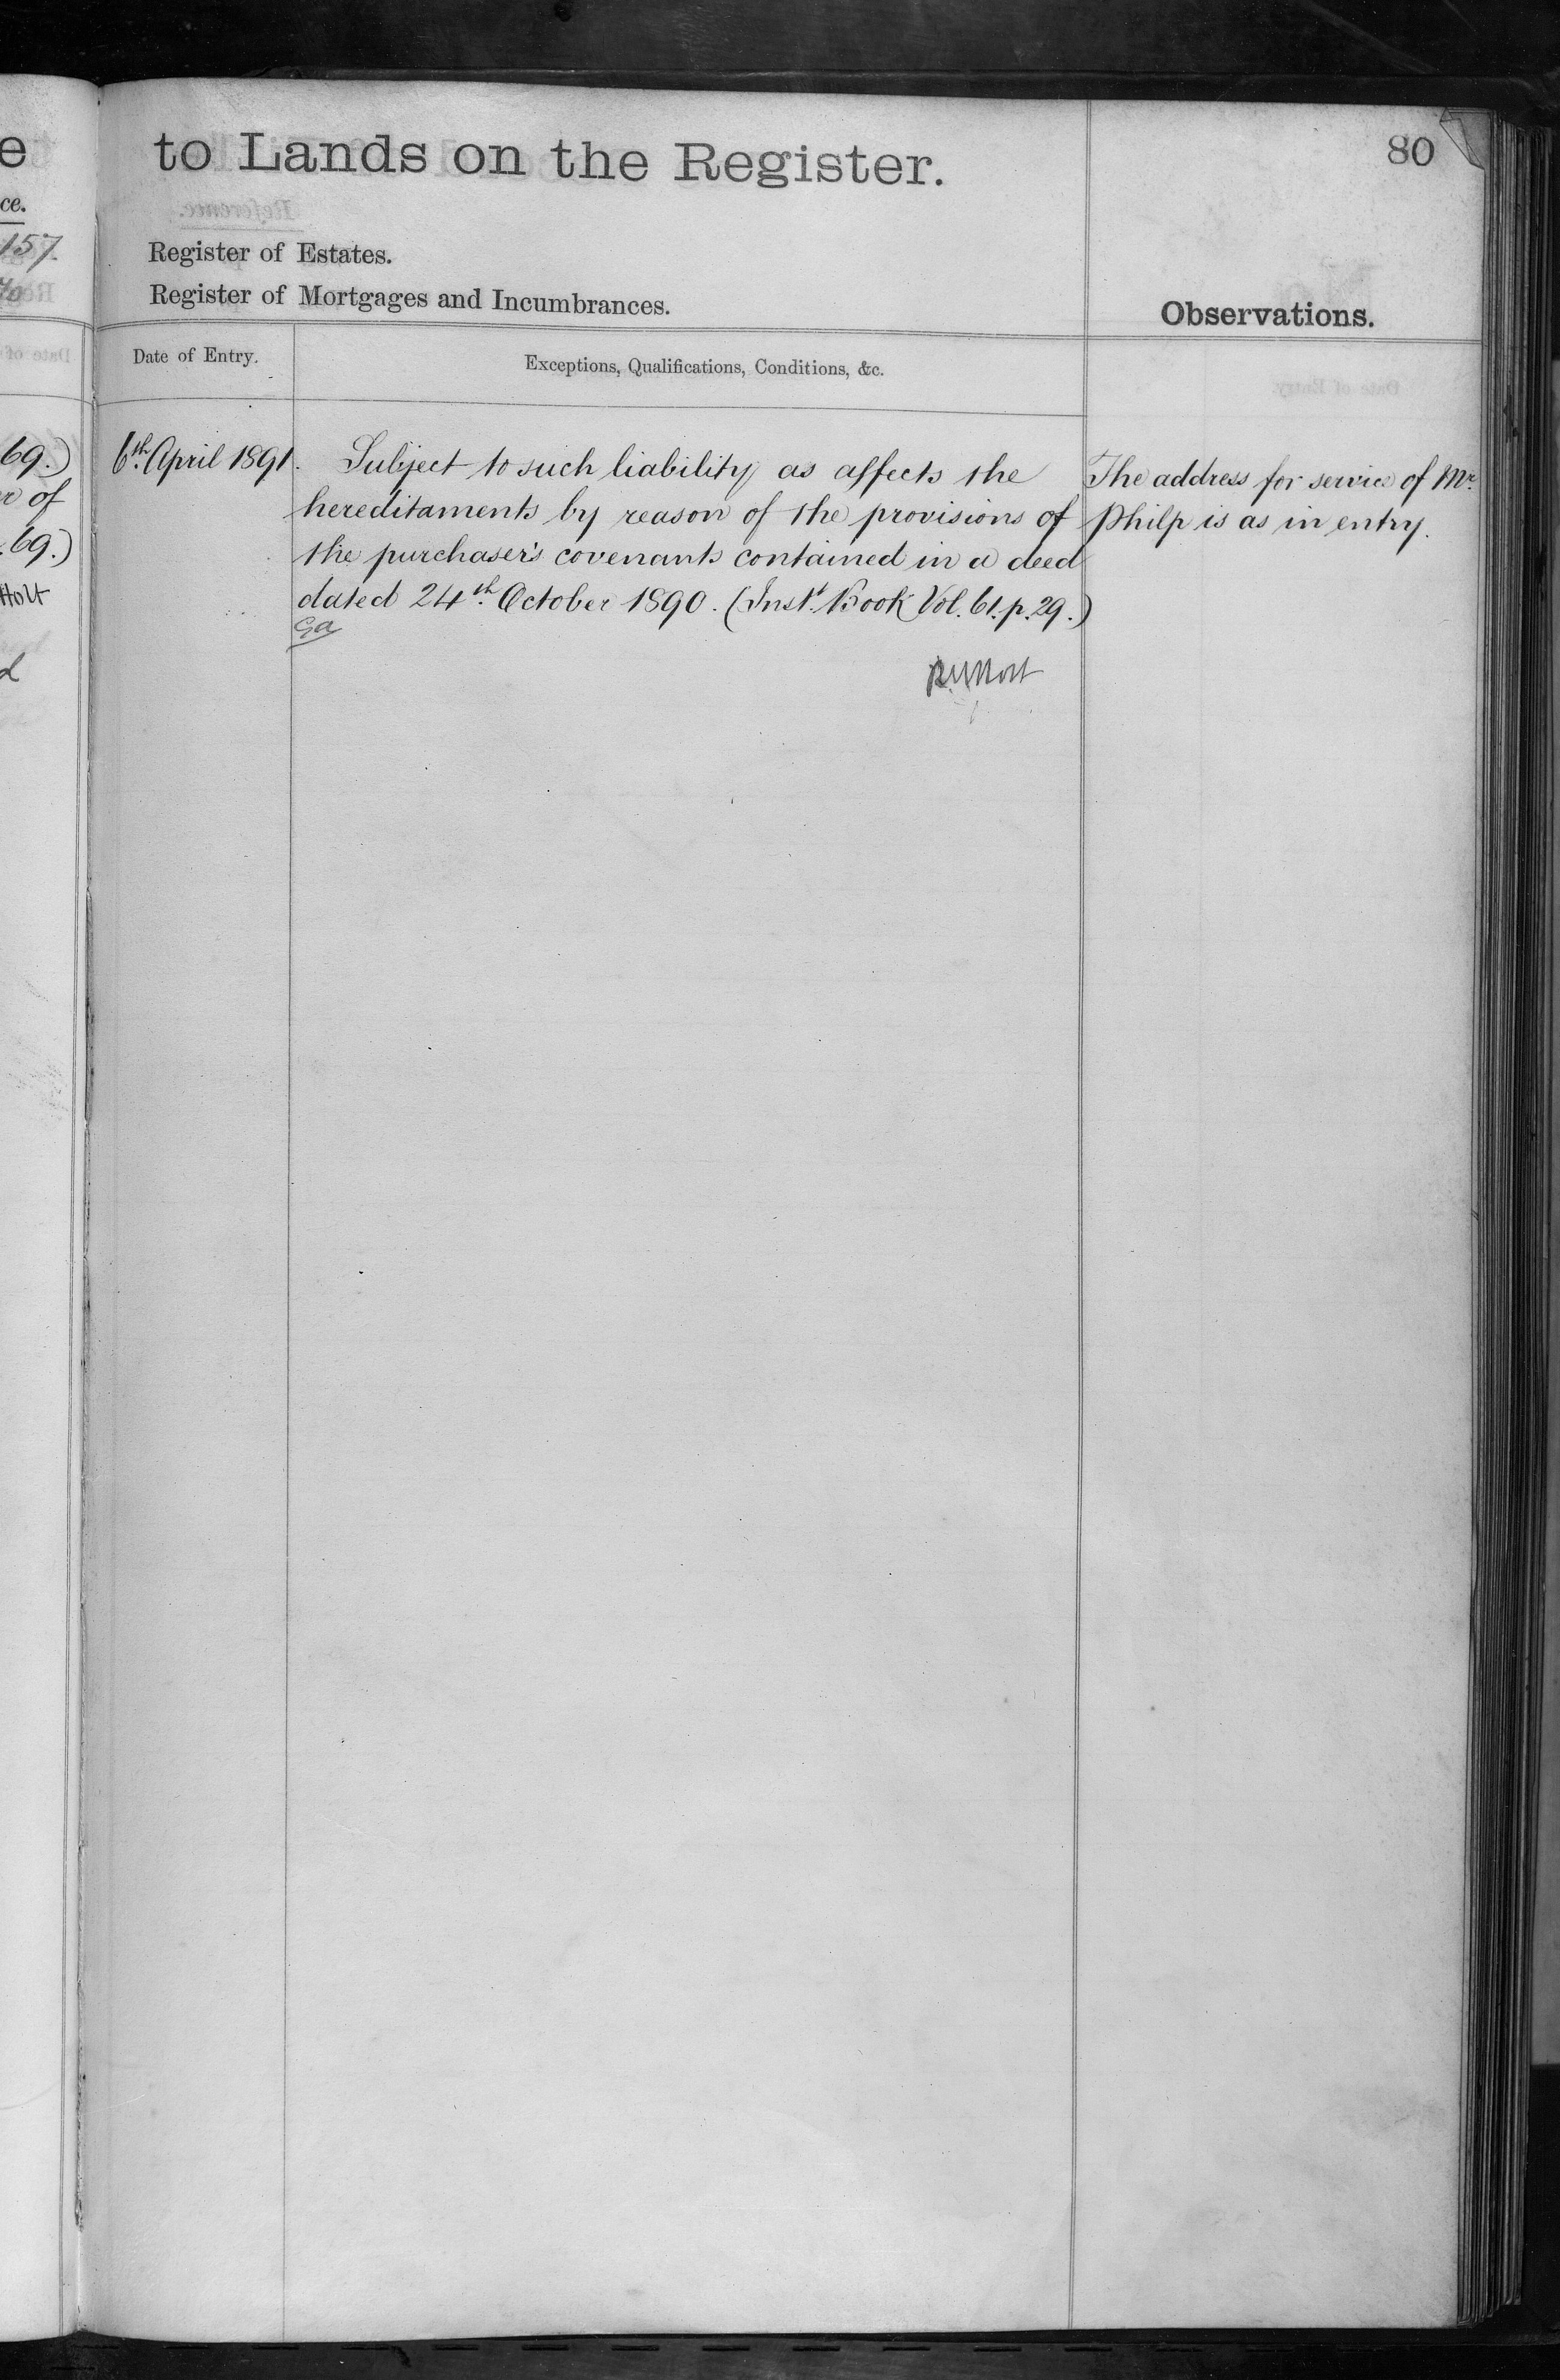 80
to Lands on the Register.
Register of Estates.
Register of Mortgages and Incumbrances.
Observations.
Date of Entry.
Exceptions, Qualifications, Conditions, &c.
6th. April 1891.
Subject to such liability as affects the
hereditaments by reason of the provisions of
the purchaser's covenants contained in a deed
dated 24th. October 1890. (Inst. Book Vol. 61. p. 29.)
The address for service of Mr.
Philp is as in entry.
e
ce.
157.
69.)
of
69.)
Holt